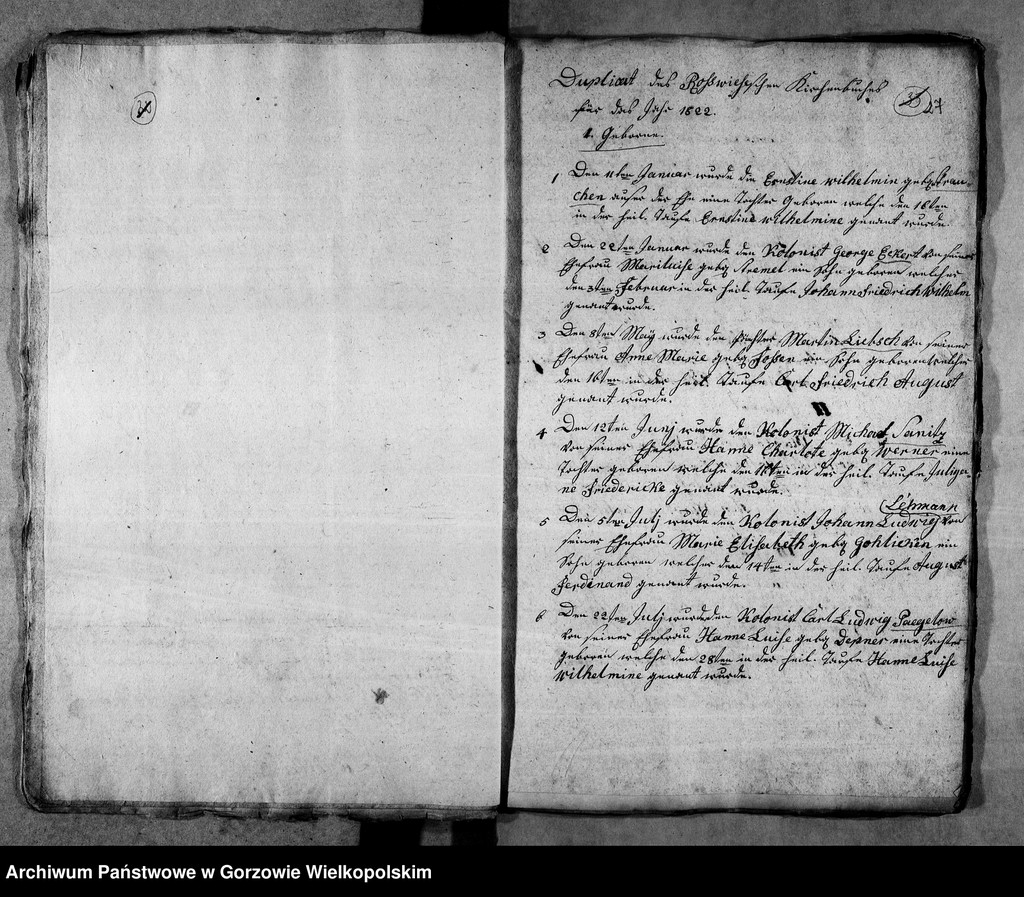 Duplicat des Roßwieseschen Kirchenbuches
für das Jahr 1822.
1. Geborne.
27
1 Den 11ten Januar wurde die Ernstine Wilhelmin gebg
chen außer der Ehe eine Tochter Geboren welche den 18ten
in der heil. Taufe Ernstine Wilhelmine genant wurde.
2 Den 22ten Januar wurde den Kolonist George Eckert von seiner
Ehefrau Mariluise gebg Tremel ein Sohn geboren welcher
den 3ten Februar in der heil. Taufe Johann Friedrich Wilhelm
genant wurde.
3 Den 8ten May wurde den Martin Liebsch von seiner
Ehefrau Anne Marie gebg ein Sohn geboren welcher
den 16ten in der heil. Taufe Carl Friedrich August
genant wurde.
4 Den 12ten Junj wurde den Kolonist Michael Sanitz
von seiner Ehefrau Hanne Charlote gebg Werner eine
Tochter geboren welche den 18ten in der heil. Taufe Juliga-
ne Friedericke genant wurde.
Lehmann
5 Den 5ten Julj wurde den Kolonist Johann Ludwig von
seiner Ehefrau Marie Elisabeth gebg Gohlicken ein
Sohn geboren welcher den 14ten in der heil. Taufe August
Ferdinand genant wurde.
6 Den 22ten Julj wurde den Kolonist Carl Ludwig Paegelow
von seiner Ehefrau Hanne Luise gebg Depner eine Tochter
geboren welche den 28ten in der heil. Taufe Hanne Luise
Wilhelmine genant wurde.
Archiwum Państwowe w Gorzowie Wielkopolskim